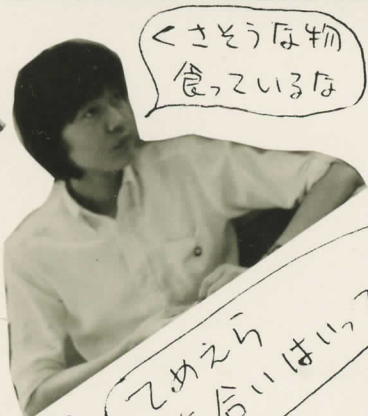 くさそうな物
食っているな
てめえら
合いはいっ